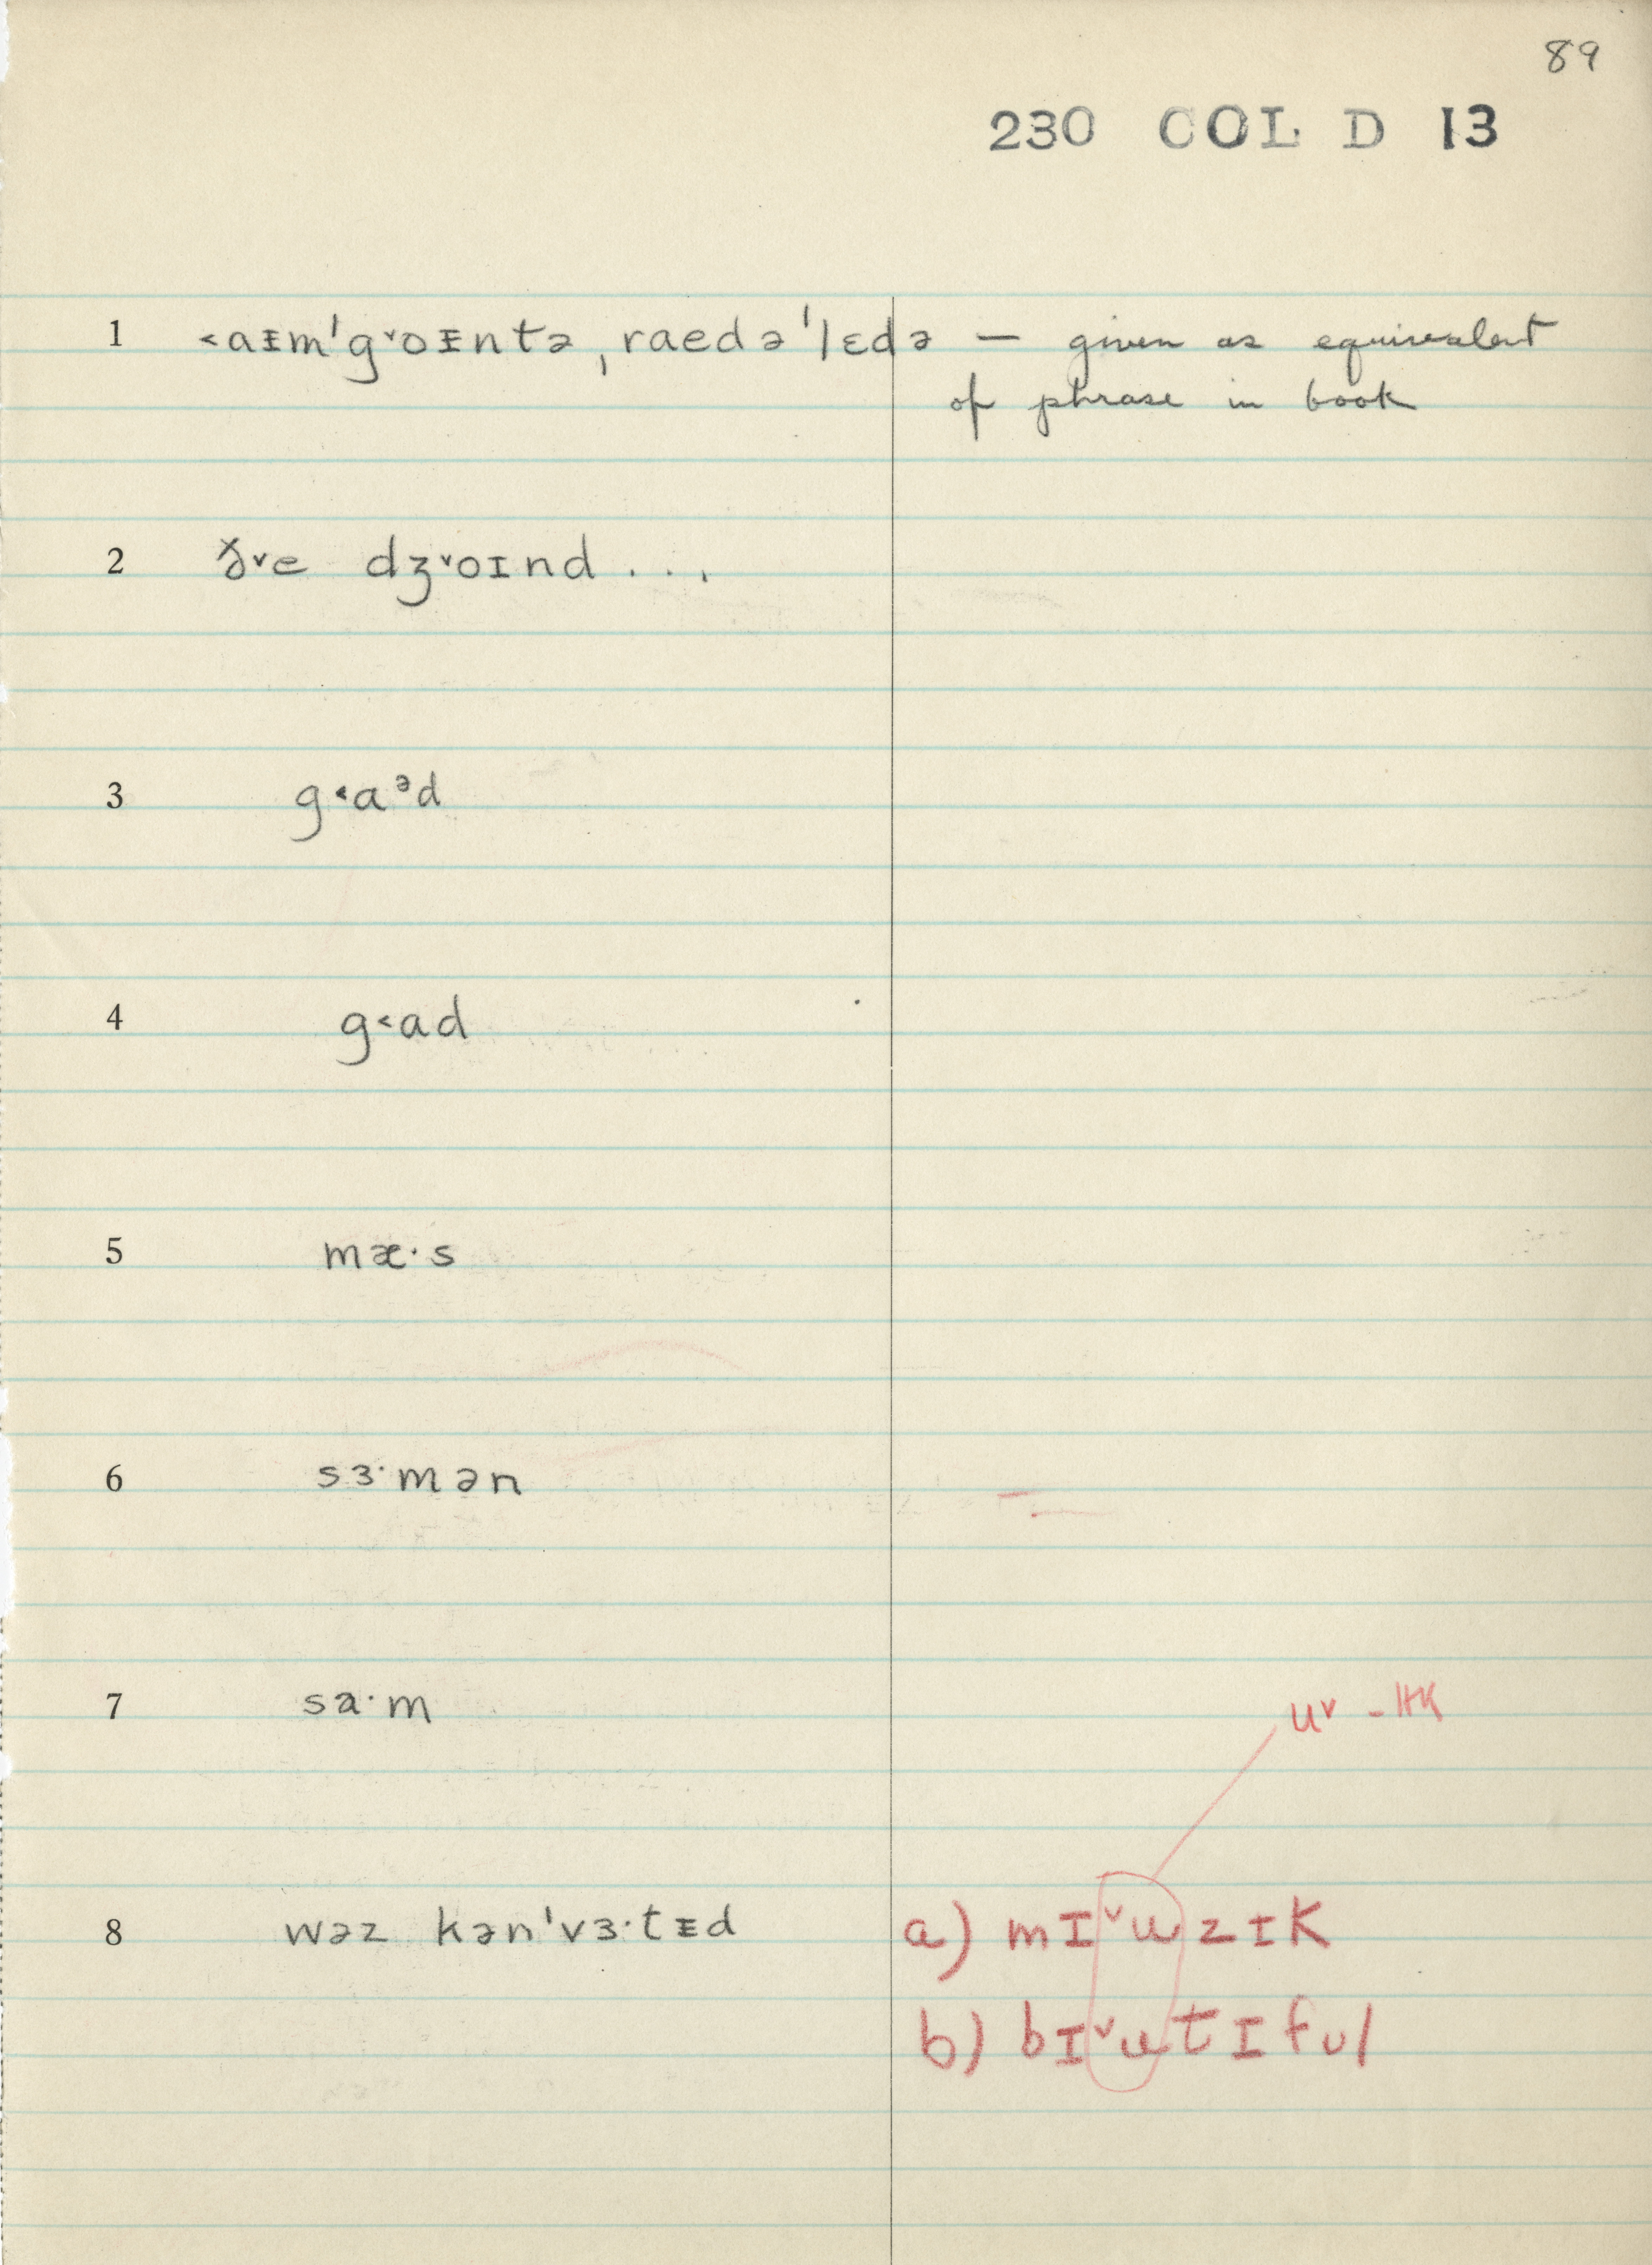 89
230 COL D 13
1 ˂aᵻmˈg˅oᵻntə ˌraedəˈlɛdə — given as equivalent
of phrase in book
2 ð˅e dʒ˅oɪnd...
3 g˂aᵊd
4 g˂ad
5 mæ·s
6 sɜ·mən
7 sa·m
u˅ - HK
8 wəz kənˈvɜ·tᵻd a) mɪ˅uzɪk
b) bɪ˅utɪful